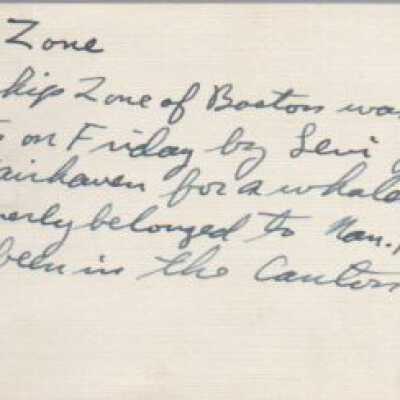 Zone
ship Zone of Boston was
on Friday by Levi
airhaven for a whale
merly belonged to Nan.
been in the Canton